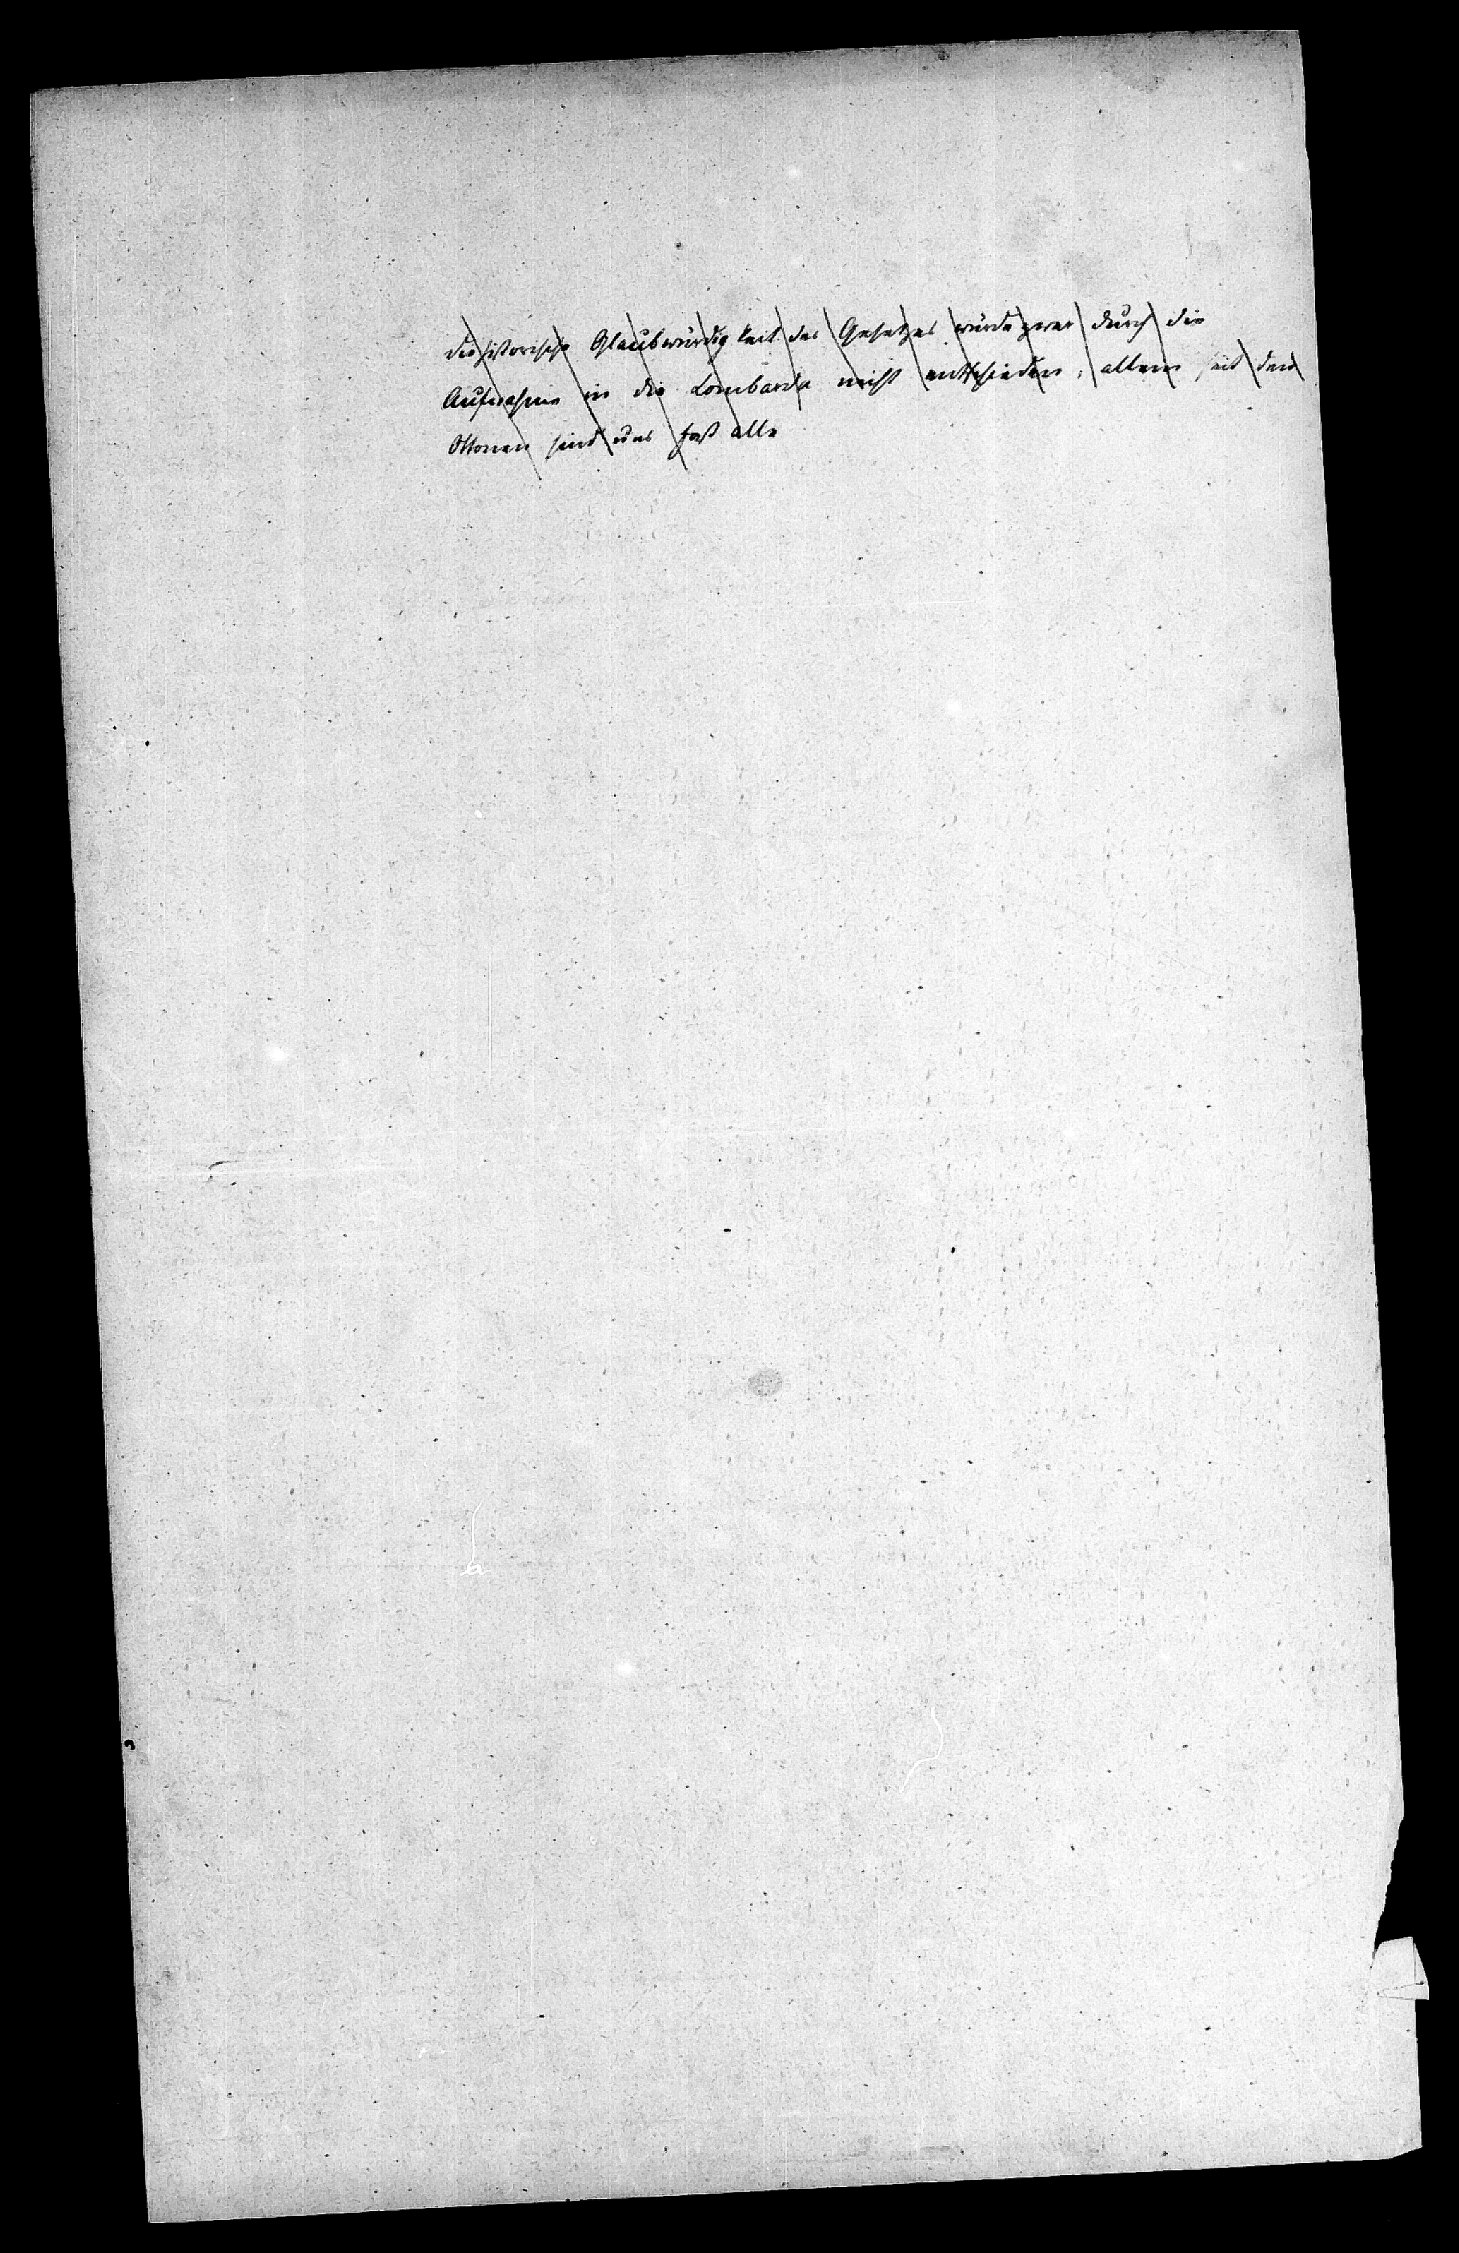 die historische Glaubwürdigkeit des Gesetzes würde zwar durch die
Aufnahme in die Lombarda nicht entschieden, allein seit den
Ottonen sind uns fast alle